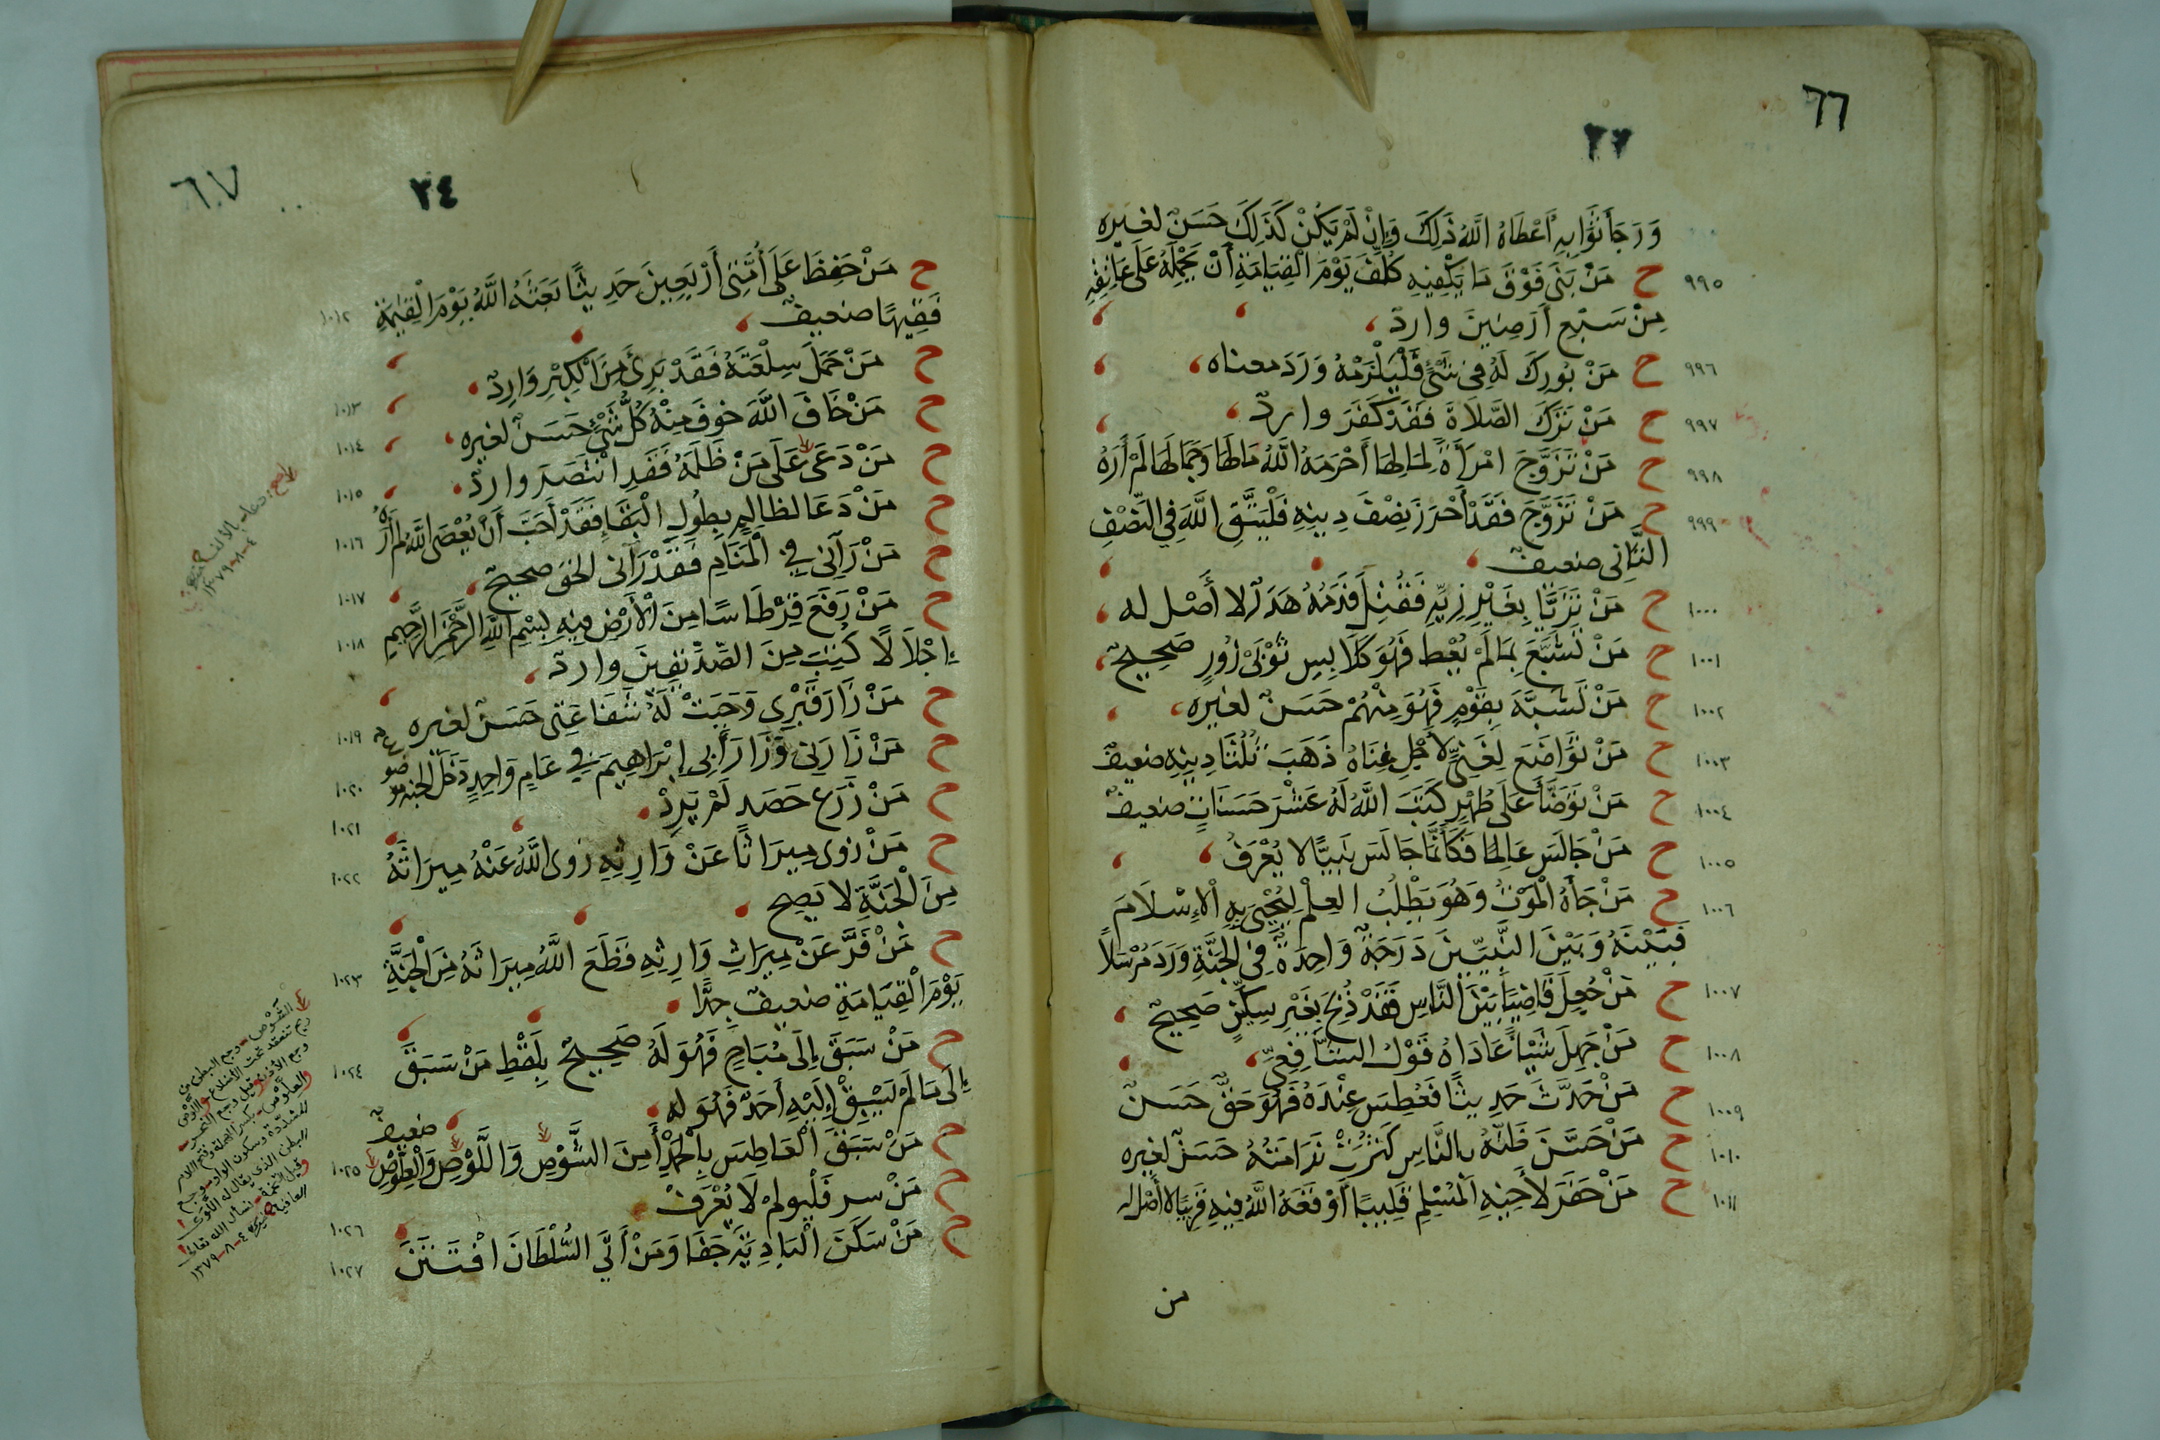 ٦٦
وَرَجَا ثَوَابِهِ أَعْطَاهُ اللَّهُ ذَلِكَ وَإِنْ لَمْ يَكُنْ كَذَلِكَ حَسَنٌ لغيره
٩٩٥ ح مَنْ بَنَى فَوْقَ مَا يَكْفِيهِ كُلِّفَ يَوْمَ الْقِيَامَةِ أَنْ يَحْمِلَهُ عَلَى عَاتِقِهِ
مِنْ سَبْعِ أَرَضِينَ واردٌ
٩٩٦ ح مَنْ بُورِكَ لَهُ فِي شَيْءٍ فَلْيَلْزَمْهُ وَرَدَ معناه
٩٩٧ ح مَنْ تَرَكَ الصَّلَاةَ فَقَدْ كَفَرَ واردٌ
٩٩٨ ح مَنْ تَزَوَّجَ امْرَأَةً لِمَالِهَا أَحْرَمَهُ اللَّهُ مَالَهَا وَجَمَالَهَا لَمْ أَرَهُ
٩٩٩ ح مَنْ تَزَوَّجَ فَقَدْ أَحْرَزَ نِصْفَ دِينِهِ فَلْيَتَّقِ اللَّهَ فِي النِّصْفِ
الثَّانِي ضعيفٌ
١٠٠٠ ح مَنْ تَزَيَّا بِغَيْرِ زِيِّهِ فَقُتِلَ فَدَمُهُ هَدَرٌ لا أَصْل له
١٠٠١ ح مَنْ تَشَبَّعَ بِمَا لَمْ يُعْط فَهُوَ كَلَابِسِ ثَوْبَيْ زُورٍ صَحِيحٌ
١٠٠٢ ح مَنْ تَشَبَّهَ بِقَوْمٍ فَهُوَ مِنْهُمْ حَسَنٌ لغيره
١٠٠٣ ح مَنْ تَوَاضَعَ لِغَنِيٍّ لِأَجْلِ غِنَاهُ ذَهَبَ ثُلُثَا دِينِهِ ضعيفٌ
١٠٠٤ ح مَنْ تَوَضَّأَ عَلَى طُهْرٍ كَتَبَ اللَّهُ لَهُ عَشْرَ حَسَنَاتٍ ضعيفٌ
١٠٠٥ ح مَنْ جَالَسَ عَالِمًا فَكَأَنَّمَا جَالَسَ نَبِيًّا لا يُعْرَفُ
١٠٠٦ ح مَنْ جَاءَهُ الْمَوْتُ وَهُوَ يَطْلُبُ العِلْمَ لِيُحْيِيَ بِهِ الْإِسْلَامَ
فَبَيْنَهُ وَبَيْنَ النَّبِيِّينَ دَرَجَةٌ وَاحِدَةٌ فِي الْجَنَّةِ وَرَدَ مُرْسَلاً
١٠٠٧ ح مَنْ جُعِلَ قَاضِيًا بَيْنَ النَّاسِ فَقَدْ ذُبِحَ بِغَيْرِ سِكِّينٍ صَحِيحٌ
١٠٠٨ ح مَنْ جَهِلَ شَيْأً عَادَاهُ قَوْلُ الشَّافِعِيّ
١٠٠٩ ح مَنْ حَدَّثَ حَدِيثًا فَعُطِسَ عِنْدَهُ فَهُوَ حَقٌّ حَسَنٌ
١٠١٠ ح مَنْ حَسَّنَ ظَنَّهُ بالنَّاسِ كَثُرَتْ نَدَامَتُهُ حَسَنٌ لغيره
١٠١١ ح مَنْ حَفَرَ لأَخِيهِ الْمُسْلِمِ قَلِيبًا أَوْقَعَهُ اللَّهُ فِيهِ قَرِيبًا لا أَصْل له
من
٦٧
٣٤
١٠١٢ ح مَنْ حَفِظَ عَلَى أُمَّتِي أَرْبَعِينَ حَدِيثًا بَعَثَهُ اللَّهُ يَوْمَ الْقِيَامَةِ
فَقِيهًا ضعيفٌ
١٠١٣ ح مَنْ حَمَلَ سِلْعَتَهُ فَقَدْ بَرِئَ مِنَ الْكِبْرِ وَارِدٌ
١٠١٤ ح مَنْ خَافَ اللَّهَ خوفَ مِنْهُ كُلُّ شَيْءٍ حَسَنٌ لغيره
١٠١٥ ح مَنْ دَعَى عَلَى مَنْ ظَلَمَهُ فَقَدِ انْتَصَرَ واردٌ
١٠١٦ ح مَنْ دَعَا لظالِمٍ بِطُولِ الْبَقَاءِ فَقَدْ أَحَبَّ أَنْ يُعْصَى اللَّهُ لم أَرَهُ
١٠١٧ ح مَنْ رَآنِي فِي الْمَنَامِ فَقَدْ رَآنِي الحَقَّ صحيحٌ
١٠١٨ ح مَنْ رَفَعَ قِرْطَاسًا مِنَ الْأَرْضِ فِيهِ بِسْمِ اللهِ الرَّحْمَنِ الرَّحِيمِ
إِجْلَالًا كُتِبَ مِنَ الصِّدِّيقِينَ واردٌ
١٠١٩ ح مَنْ زَارَ قَبْرِي وَجَبَتْ لَهُ شَفَاعَتِي حَسَنٌ لغيره
١٠٢٠ ح مَنْ زَارَنِي وَزَارَ أَبِي إِبْرَاهِيمَ فِي عَامٍ وَاحِدٍ دَخَلَ الجنة موضوع
١٠٢١ ح مَنْ زَرَعَ حَصَدَ لَمْ يَرِدْ
١٠٢٢ ح مَنْ زوى مِيرَاثًا عَنْ وَارِثِهِ زوى اللَّهُ عَنْهُ مِيرَاثَهُ
مِنَ الْجَنَّةِ لا يَصِح
١٠٢٣ ح مَنْ فَرَّ عَنْ مِيرَاثِ وَارِثِهِ قَطَعَ اللَّهُ مِيرَاثَهُ مِنَ الْجَنَّةِ
يَوْمَ الْقِيَامَةِ ضعيفٌ جِدًّا
١٠٢٤ ح مَنْ سَبَقَ إِلَى مُبَاحٍ فَهُوَ لَهُ صَحِيحٌ بِلَفْظِ مَنْ سَبَقَ
إِلَى مَا لَمْ يَسْبِقْ إِلَيْهِ أَحَدٌ فَهُوَ له
١٠٢٥ ح مَنْ سَبَقَ الْعَاطِسَ بِالْحَمْدِ أَمِنَ الشَّوْصِ وَاللَّوْصِ وَالْعِلَّوْصِ ضعيفٌ
١٠٢٦ ح مَنْ سر فَلْيولم لَا يُعْرَفْ
١٠٢٧ ح مَنْ سَكَنَ الْبَادِيَةَ جَفَا وَمَنْ أَتَى السُّلْطَانَ افْتَتَنَ
الشَّوْص وجع البطن من
ريح تنعقد تحت الأضلاع واللَّوْص
وجع الأذن وقيل وجع النحر
والعِلَّوْص بكسر المهملة وفتح اللام
المشددة وسكون الواو وجع
البطن الذي يقال له اللَّوَى
وقيل التخمة نسأل الله تعالى
العافية
٤-٨-١٣٧٩